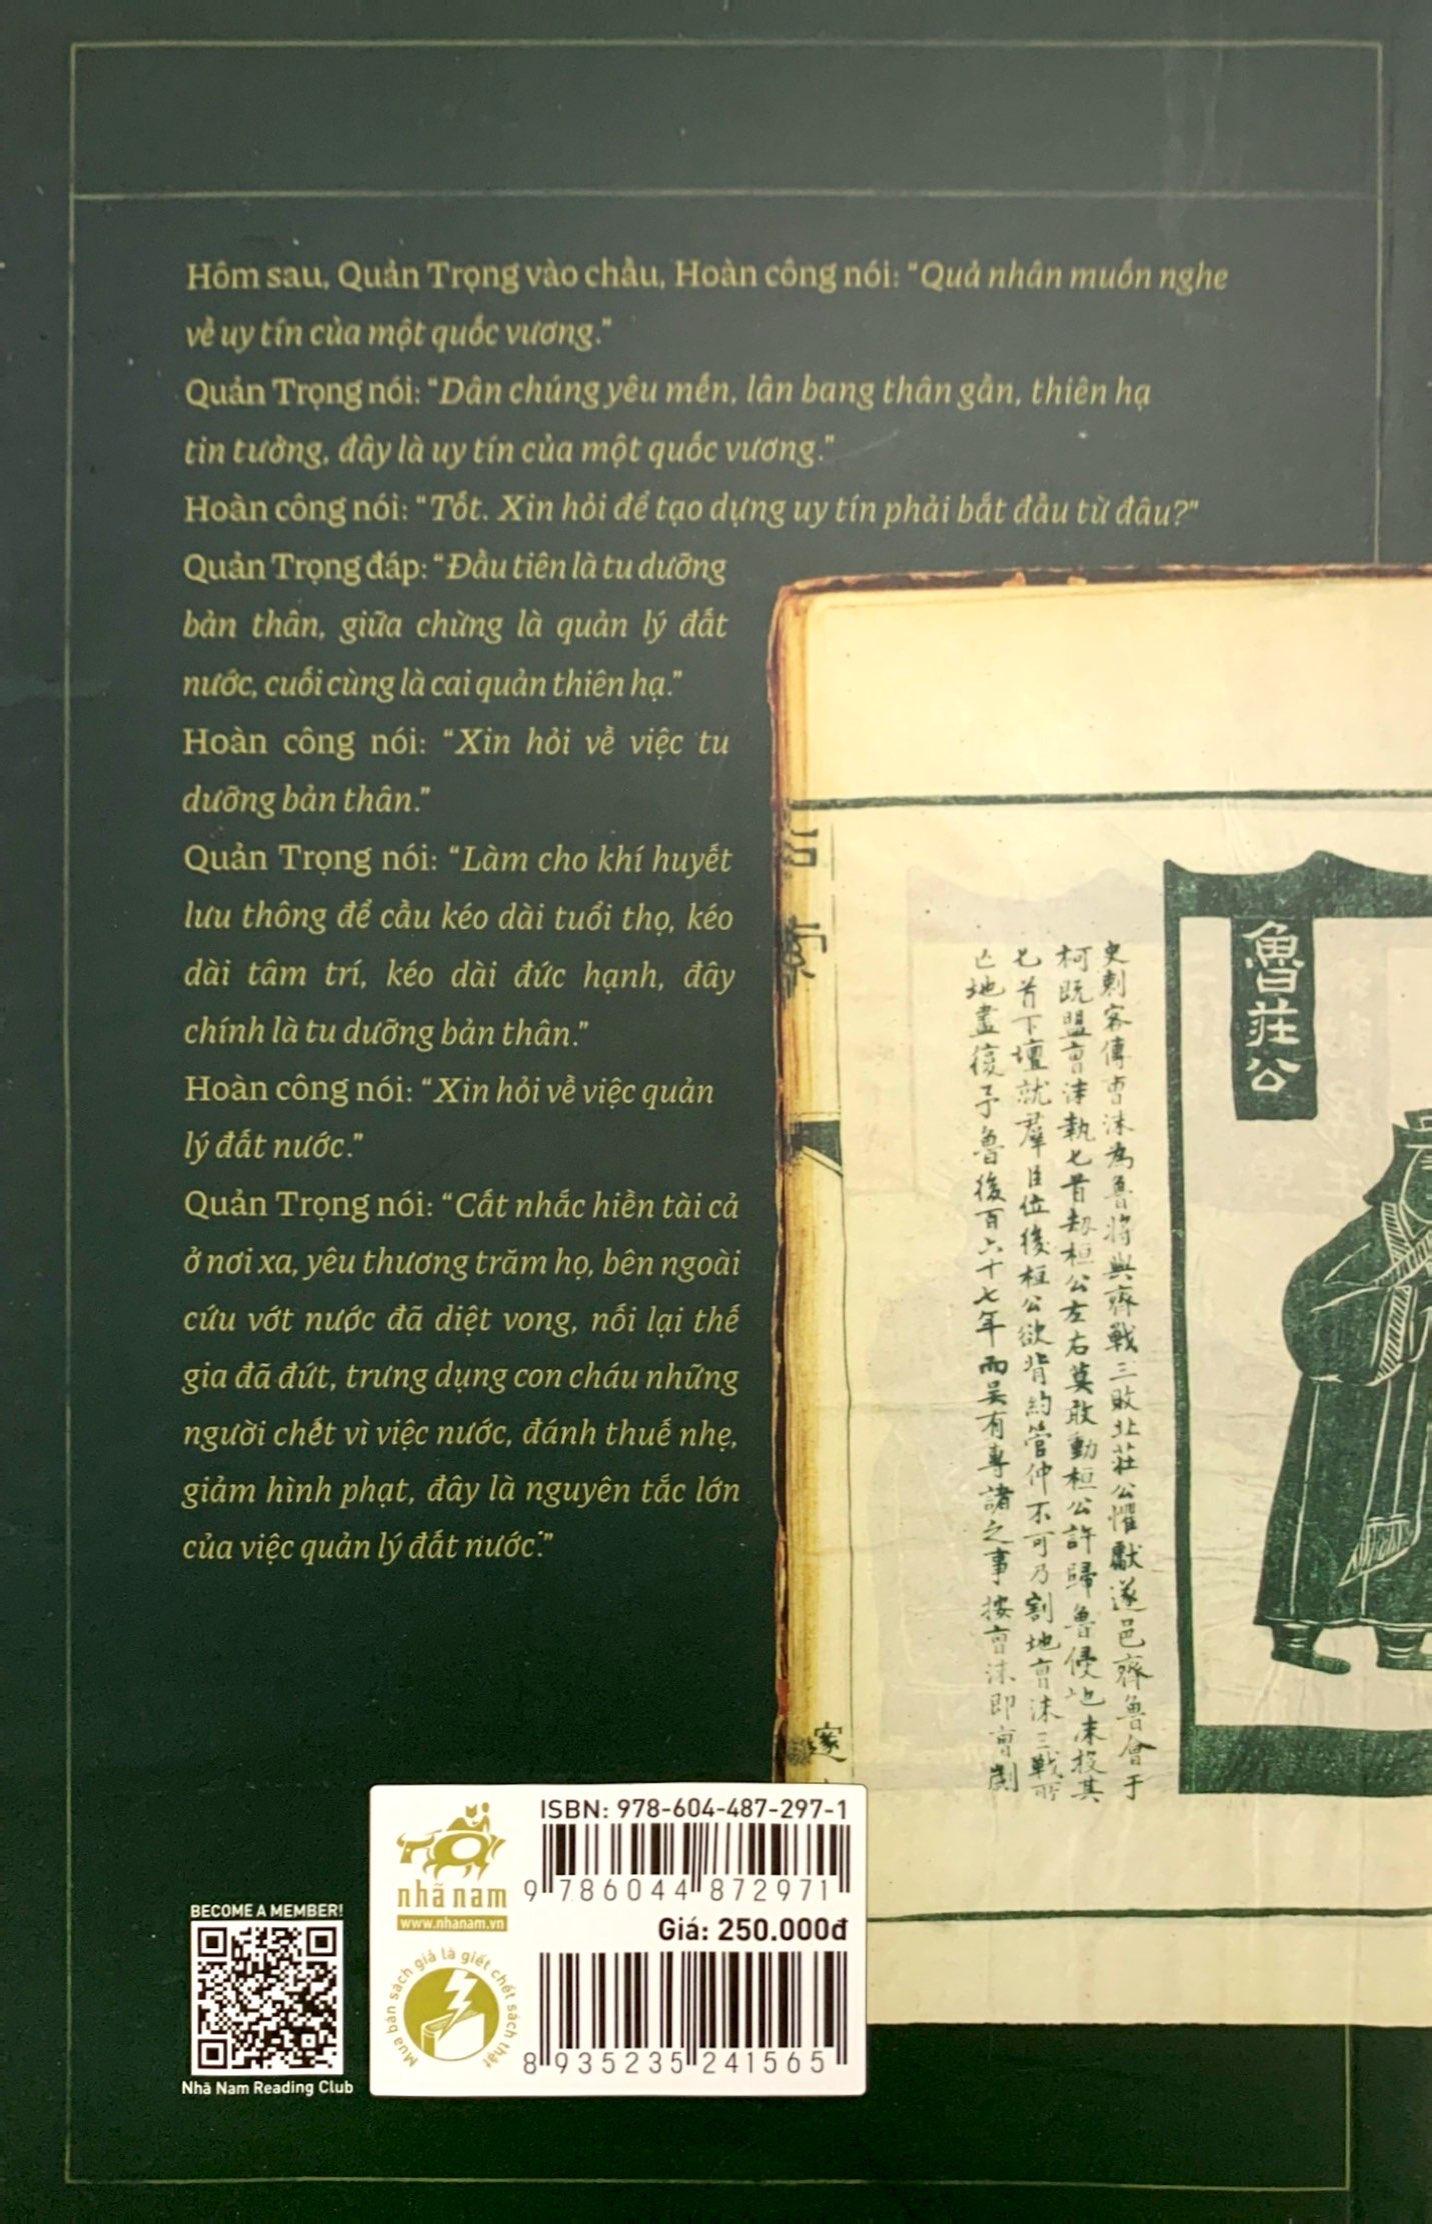 Hôm sau, Quản Trọng vào chầu, Hoàn công nói: “Quả nhân muốn nghe
về uy tín của một quốc vương.”
Quản Trọng nói: “Dân chúng yêu mến, lân bang thân gần, thiên hạ
tin tưởng, đây là uy tín của một quốc vương.”
Hoàn công nói: “Tốt. Xin hỏi để tạo dựng uy tín phải bắt đầu từ đâu?”
Quản Trọng đáp: “Đầu tiên là tu dưỡng
bản thân, giữa chừng là quản lý đất
nước, cuối cùng là cai quản thiên hạ.”
Hoàn công nói: “Xin hỏi về việc tu
dưỡng bản thân.”
Quản Trọng nói: “Làm cho khí huyết
lưu thông để cầu kéo dài tuổi thọ, kéo
dài tâm trí, kéo dài đức hạnh, đây
chính là tu dưỡng bản thân.”
Hoàn công nói: “Xin hỏi về việc quản
lý đất nước.”
Quản Trọng nói: “Cất nhắc hiền tài cả
ở nơi xa, yêu thương trăm họ, bên ngoài
cứu vớt nước đã diệt vong, nối lại thế
gia đã đứt, trưng dụng con cháu những
người chết vì việc nước, đánh thuế nhẹ,
giảm hình phạt, đây là nguyên tắc lớn
của việc quản lý đất nước.”
魯莊公
史刺客傳曹沫為魯將與齊戰三敗北莊公懼獻遂邑齊魯會于
柯既盟曹沫執匕首劫桓公左右莫敢動桓公許歸魯侵地沫投其
匕首下壇就羣臣位後桓公欲背約管仲不可乃割地曹沫三戰所
亡地盡復予魯後百六十七年而吳有專諸之事按曹沫即曹劌
BECOME A MEMBER!
Nhã Nam Reading Club
nhã nam
www.nhanam.vn
Mua bán sách giả là giết chết sách thật
ISBN: 978-604-487-297-1
9 786044 872971
Giá: 250.000đ
8 935235 241565